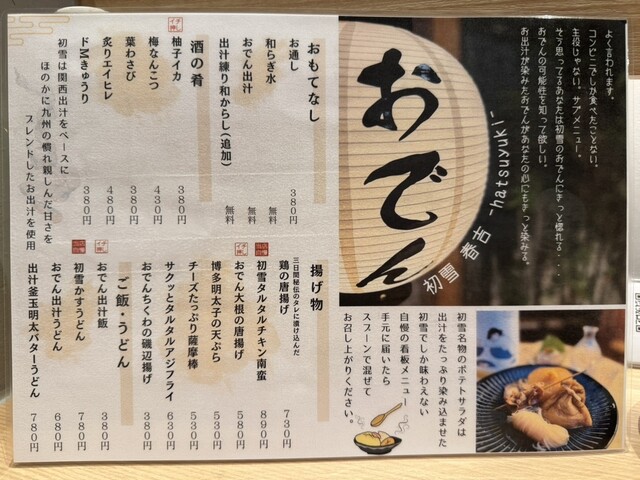 よく言われます。
コンビニでしか食べたことない。
主役じゃない、サブメニュー。
そう思ってるあなたは初雪のおでんにきっと惚れる・・・
おでんの可能性を知って欲しい。
お出汁が染みたおでんがあなたの心にもきっと染みる。
おでん
初雪 春吉 -hatsuyuki-
おもてなし
お通し 380円
和らぎ水 無料
おでん出汁 無料
出汁練り和からし(追加) 無料
酒の肴
イチ押し
柚子イカ 380円
梅なんこつ 430円
葉わさび 380円
炙りエイヒレ 480円
ドMきゅうり 380円
初雪は関西出汁をベースに
ほのかに九州の慣れ親しんだ甘さを
ブレンドしたお出汁を使用
揚げ物
三日間秘伝のタレに漬け込んだ
鶏の唐揚げ 730円
初雪タルタルチキン南蛮 890円
イチ押し
おでん大根の唐揚げ 580円
博多明太子の天ぷら 530円
チーズたっぷり薩摩棒 530円
サクッとタルタルアジフライ 630円
おでんちくわの磯辺揚げ 380円
ご飯・うどん
イチ押し
お出汁飯 380円
初雪かすうどん 780円
おでん出汁うどん 680円
出汁釜玉明太バターうどん 780円
初雪名物のポテトサラダは
出汁をたっぷり染み込ませた
初雪でしか味わえない
自慢の看板メニュー
手元に届いたら
スプーンで混ぜて
お召し上がりください。